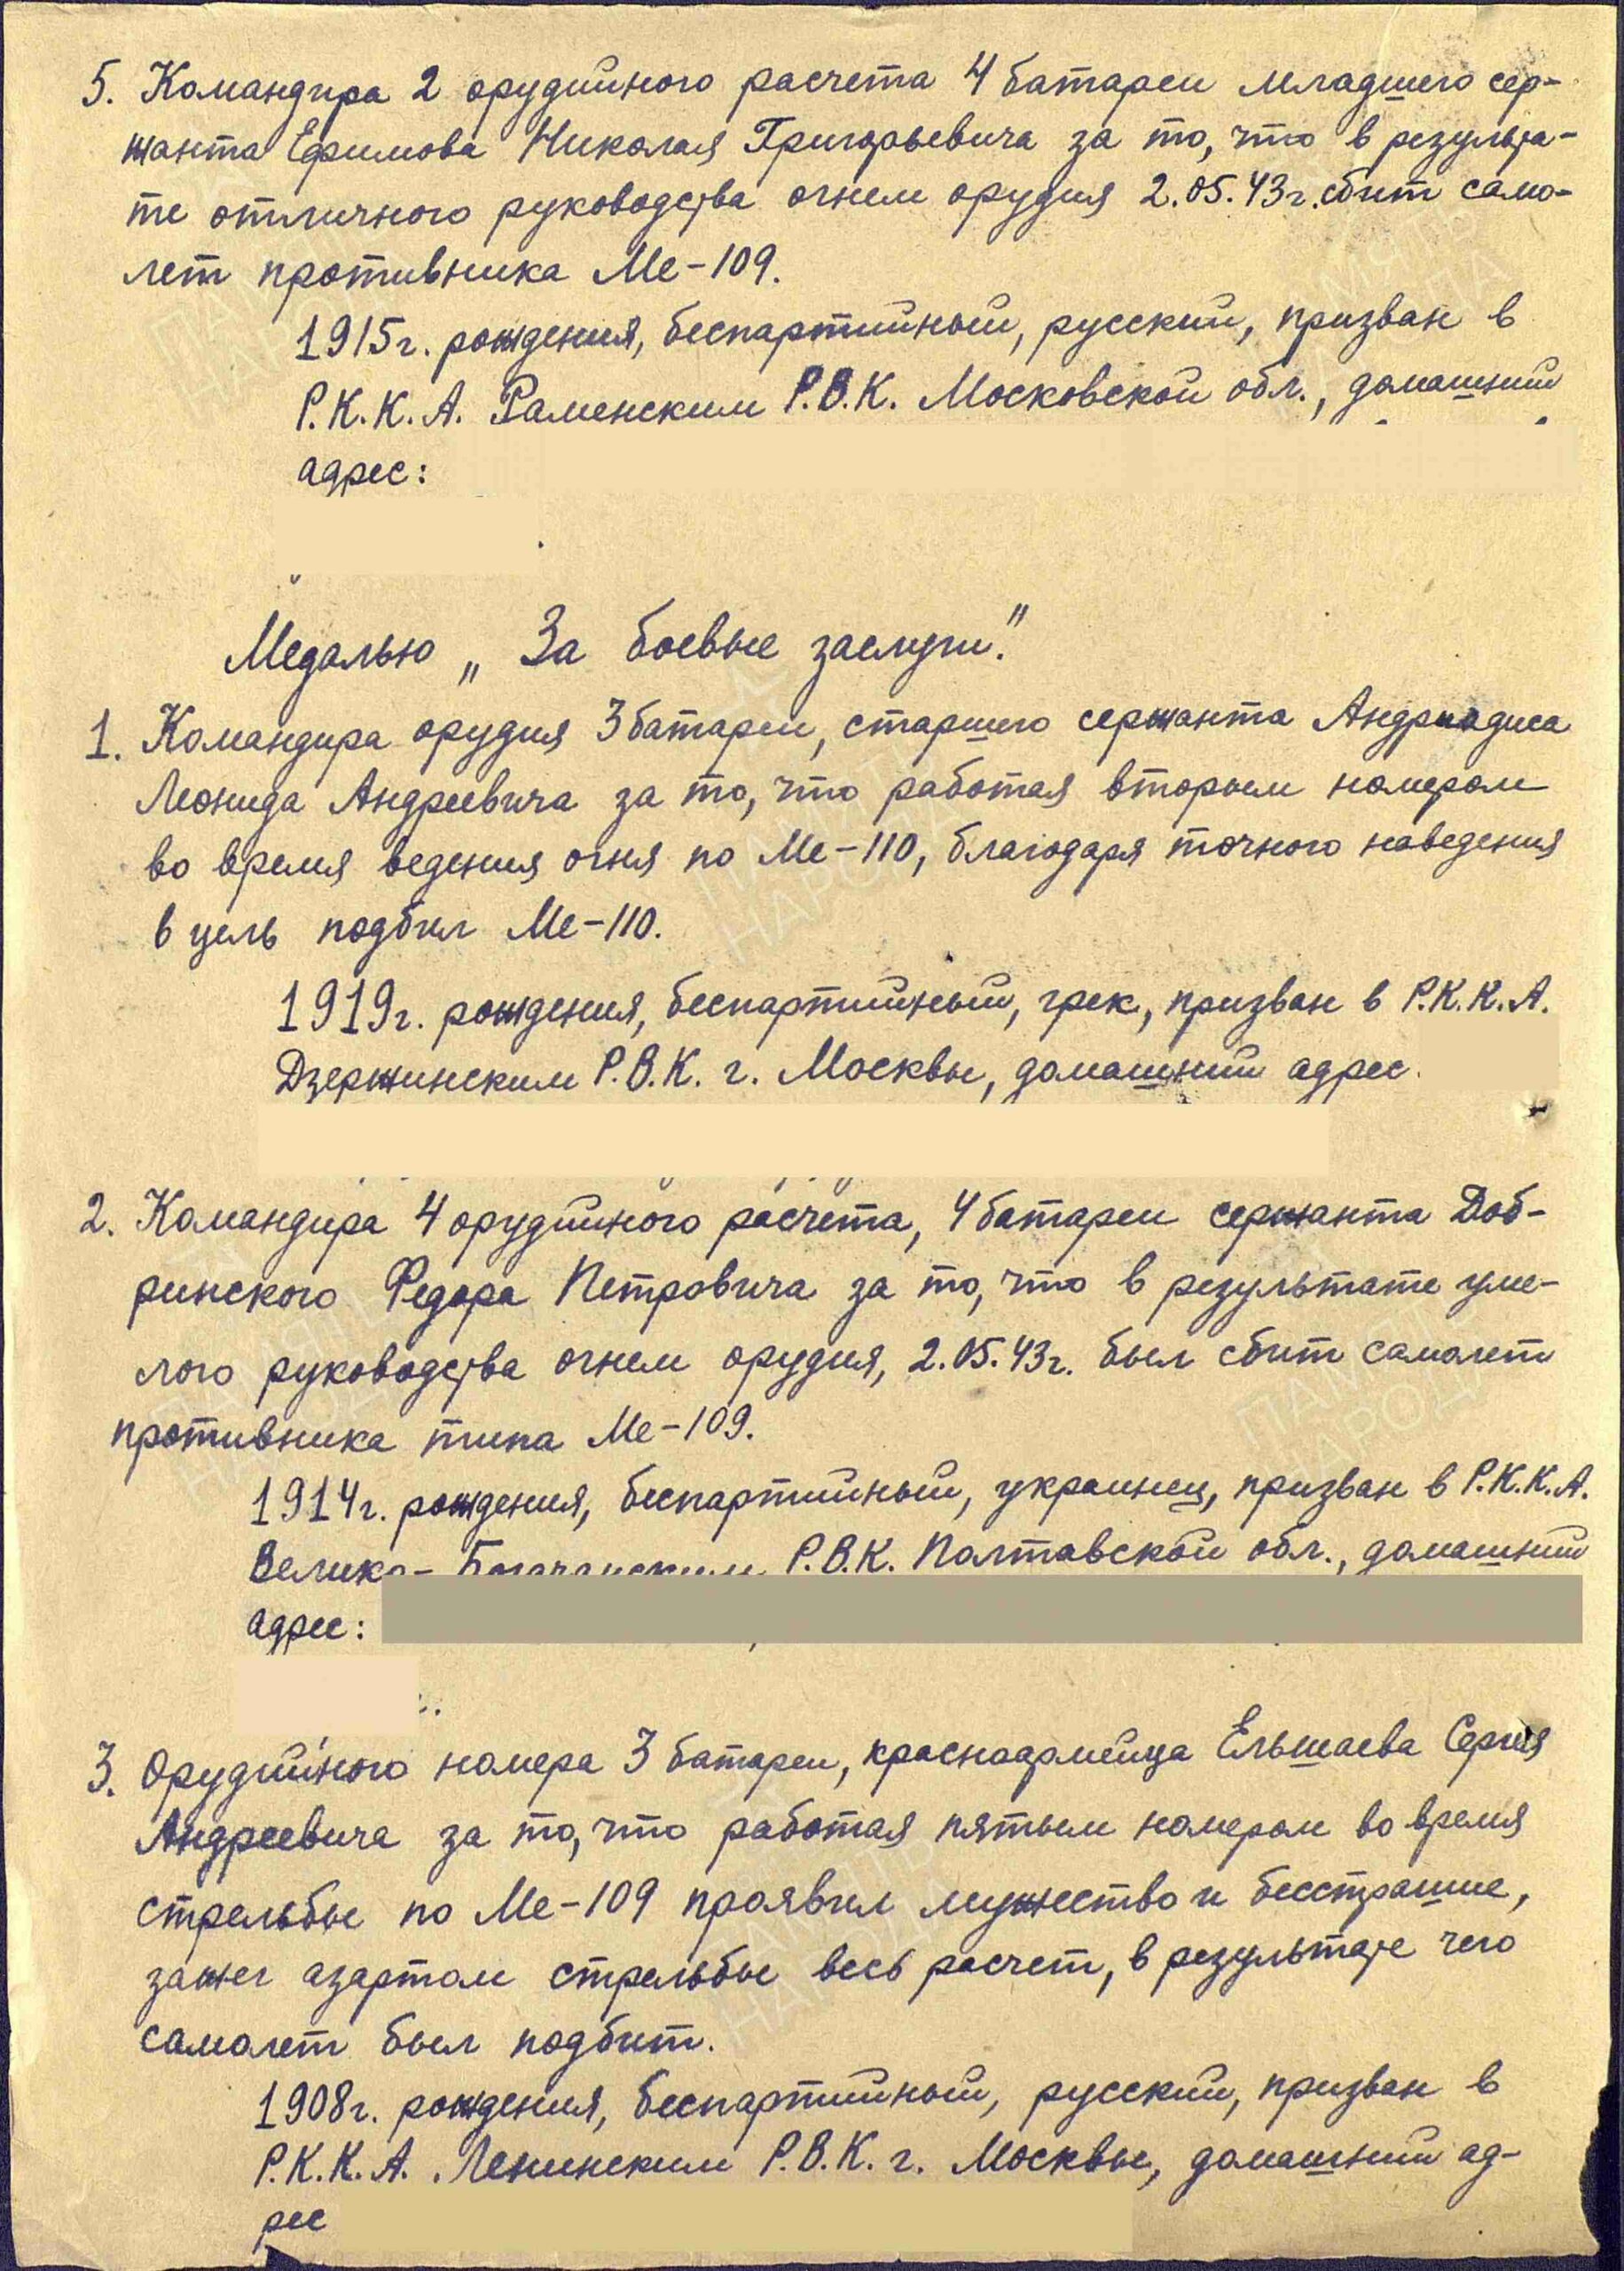 5. Командира 2 орудийного расчета 4 батареи младшего сер-
жанта Ефимова Николая Григорьевича за то, что в результа-
те отличного руководства огнем орудия 2.05.43г. сбит само-
лет противника Ме-109.
1915г. рождения, беспартийный, русский, призван в
Р.К.К.А. Раменским Р.В.К. Московской обл., домашний
адрес:
Медалью „За боевые заслуги."
1. Командира орудия 3 батареи, старшего сержанта Андриадиса
Леонида Андреевича за то, что работая вторым номером
во время ведения огня по Ме-110, благодаря точного наведения
в цель подбил Ме-110.
1919г. рождения, беспартийный, грек, призван в Р.К.К.А.
Дзержинским Р.В.К. г. Москвы, домашний адрес.
2. Командира 4 орудийного расчета, 4 батареи сержанта Доб-
ринского Федора Петровича за то, что в результате уме-
лого руководства огнем орудия, 2.05.43г. был сбит самолет
противника типа Ме-109.
1914г. рождения, беспартийный, украинец, призван в Р.К.К.А.
Велико-Богачанским Р.В.К. Полтавской обл., домашний
адрес:
3. Орудийного номера 3 батареи, красноармейца Ельшаева Сергея
Андреевича за то, что работая пятым номером во время
стрельбы по Ме-109 проявил мужество и бесстрашие,
зажег азартом стрельбы весь расчет, в результате чего
самолет был подбит.
1908г. рождения, беспартийный, русский, призван в
Р.К.К.А. Ленинским Р.В.К. г. Москвы, домашний ад-
рес